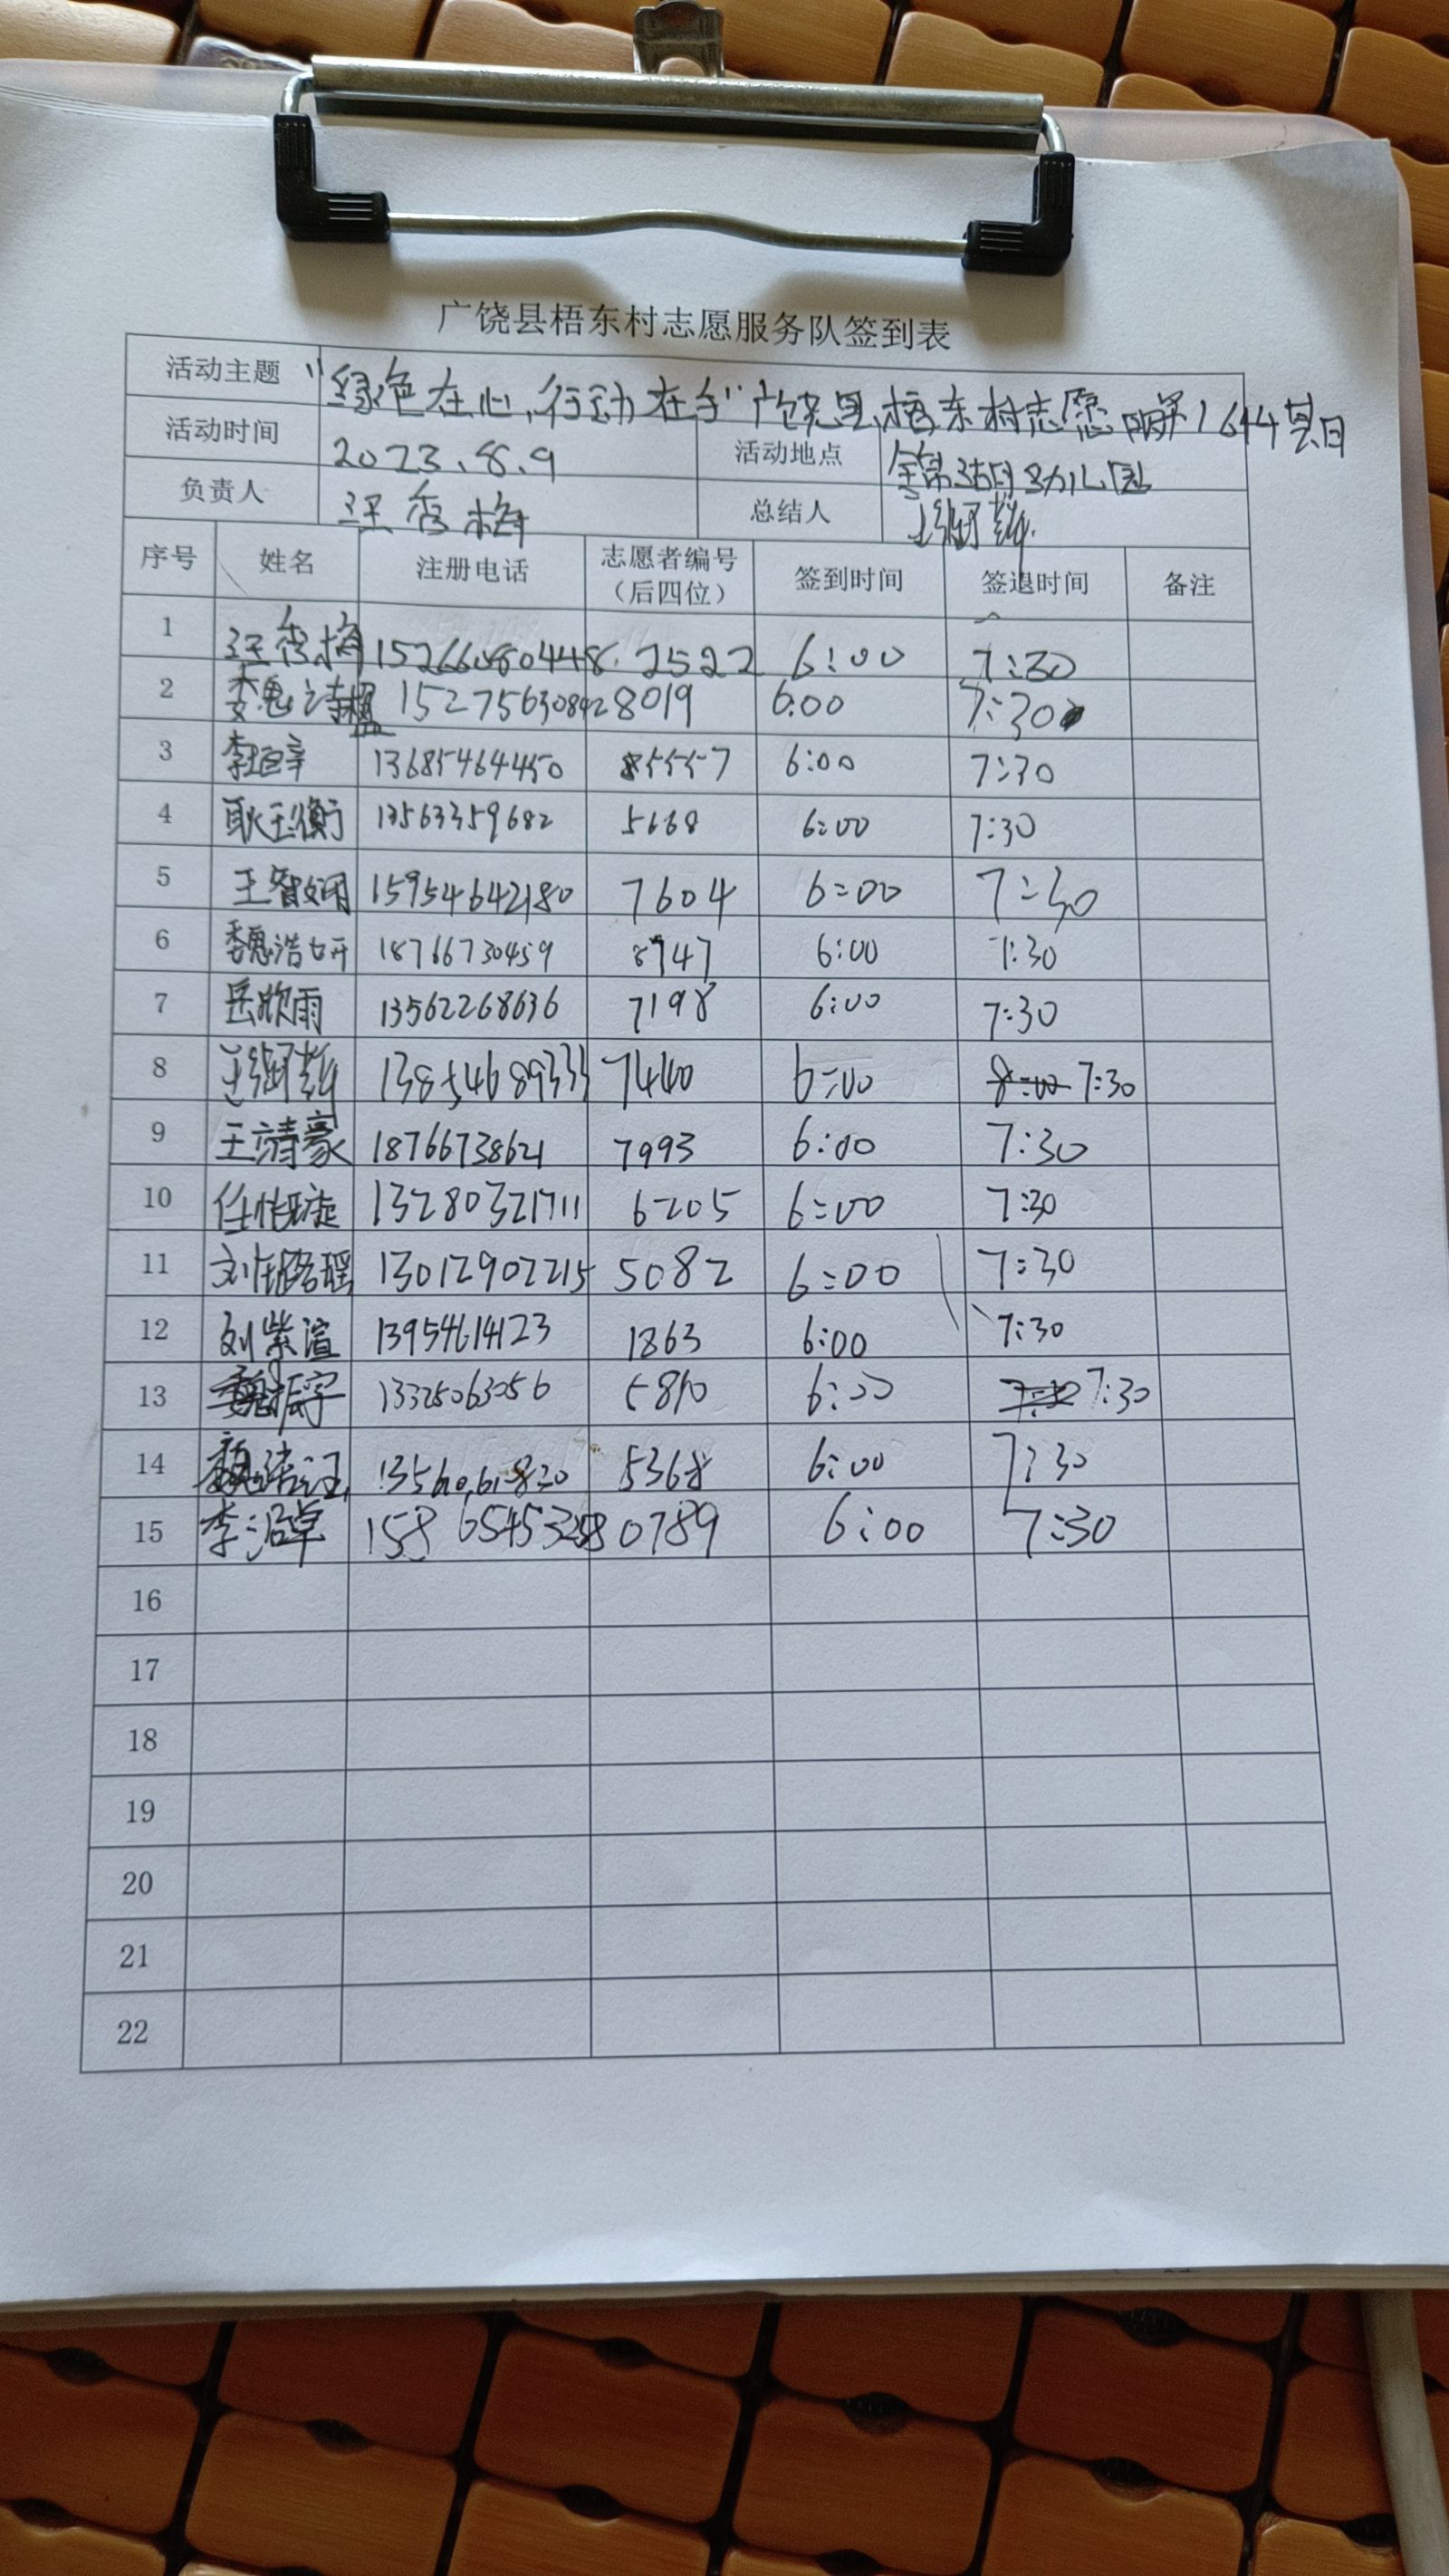 广饶县梧东村志愿服务队签到表
活动主题 "绿色在心,行动在手"广饶县梧东村志愿服第1644期
活动时间 2023.8.9 活动地点 锦湖幼儿园
负责人 汪秀梅 总结人
序号 姓名 注册电话 志愿者编号(后四位) 签到时间 签退时间 备注
1 汪秀梅 15266080448 2522 6:00 7:30
2 魏诗 15275630892 8019 6:00 7:30
3 13685464450 6:00 7:30
4 耿玉衡 13563359682 5668 6:00 7:30
5 王智娴 15954642180 7604 6:00 7:30
6 魏浩妍 18766730459 8747 6:00 7:30
7 岳欣雨 13562268636 7198 6:00 7:30
8 13854689333 7440 6:00 7:30
9 王靖豪 18766738621 7993 6:00 7:30
10 任怡璇 13280321711 6205 6:00 7:30
11 刘 瑶 13012902215 5082 6:00 7:30
12 刘紫渲 13954614123 1863 6:00 7:30
13 魏振宇 13325063056 5810 6:00 7:30
14 5368 6:00 7:30
15 李 卓 0789 6:00 7:30
16
17
18
19
20
21
22